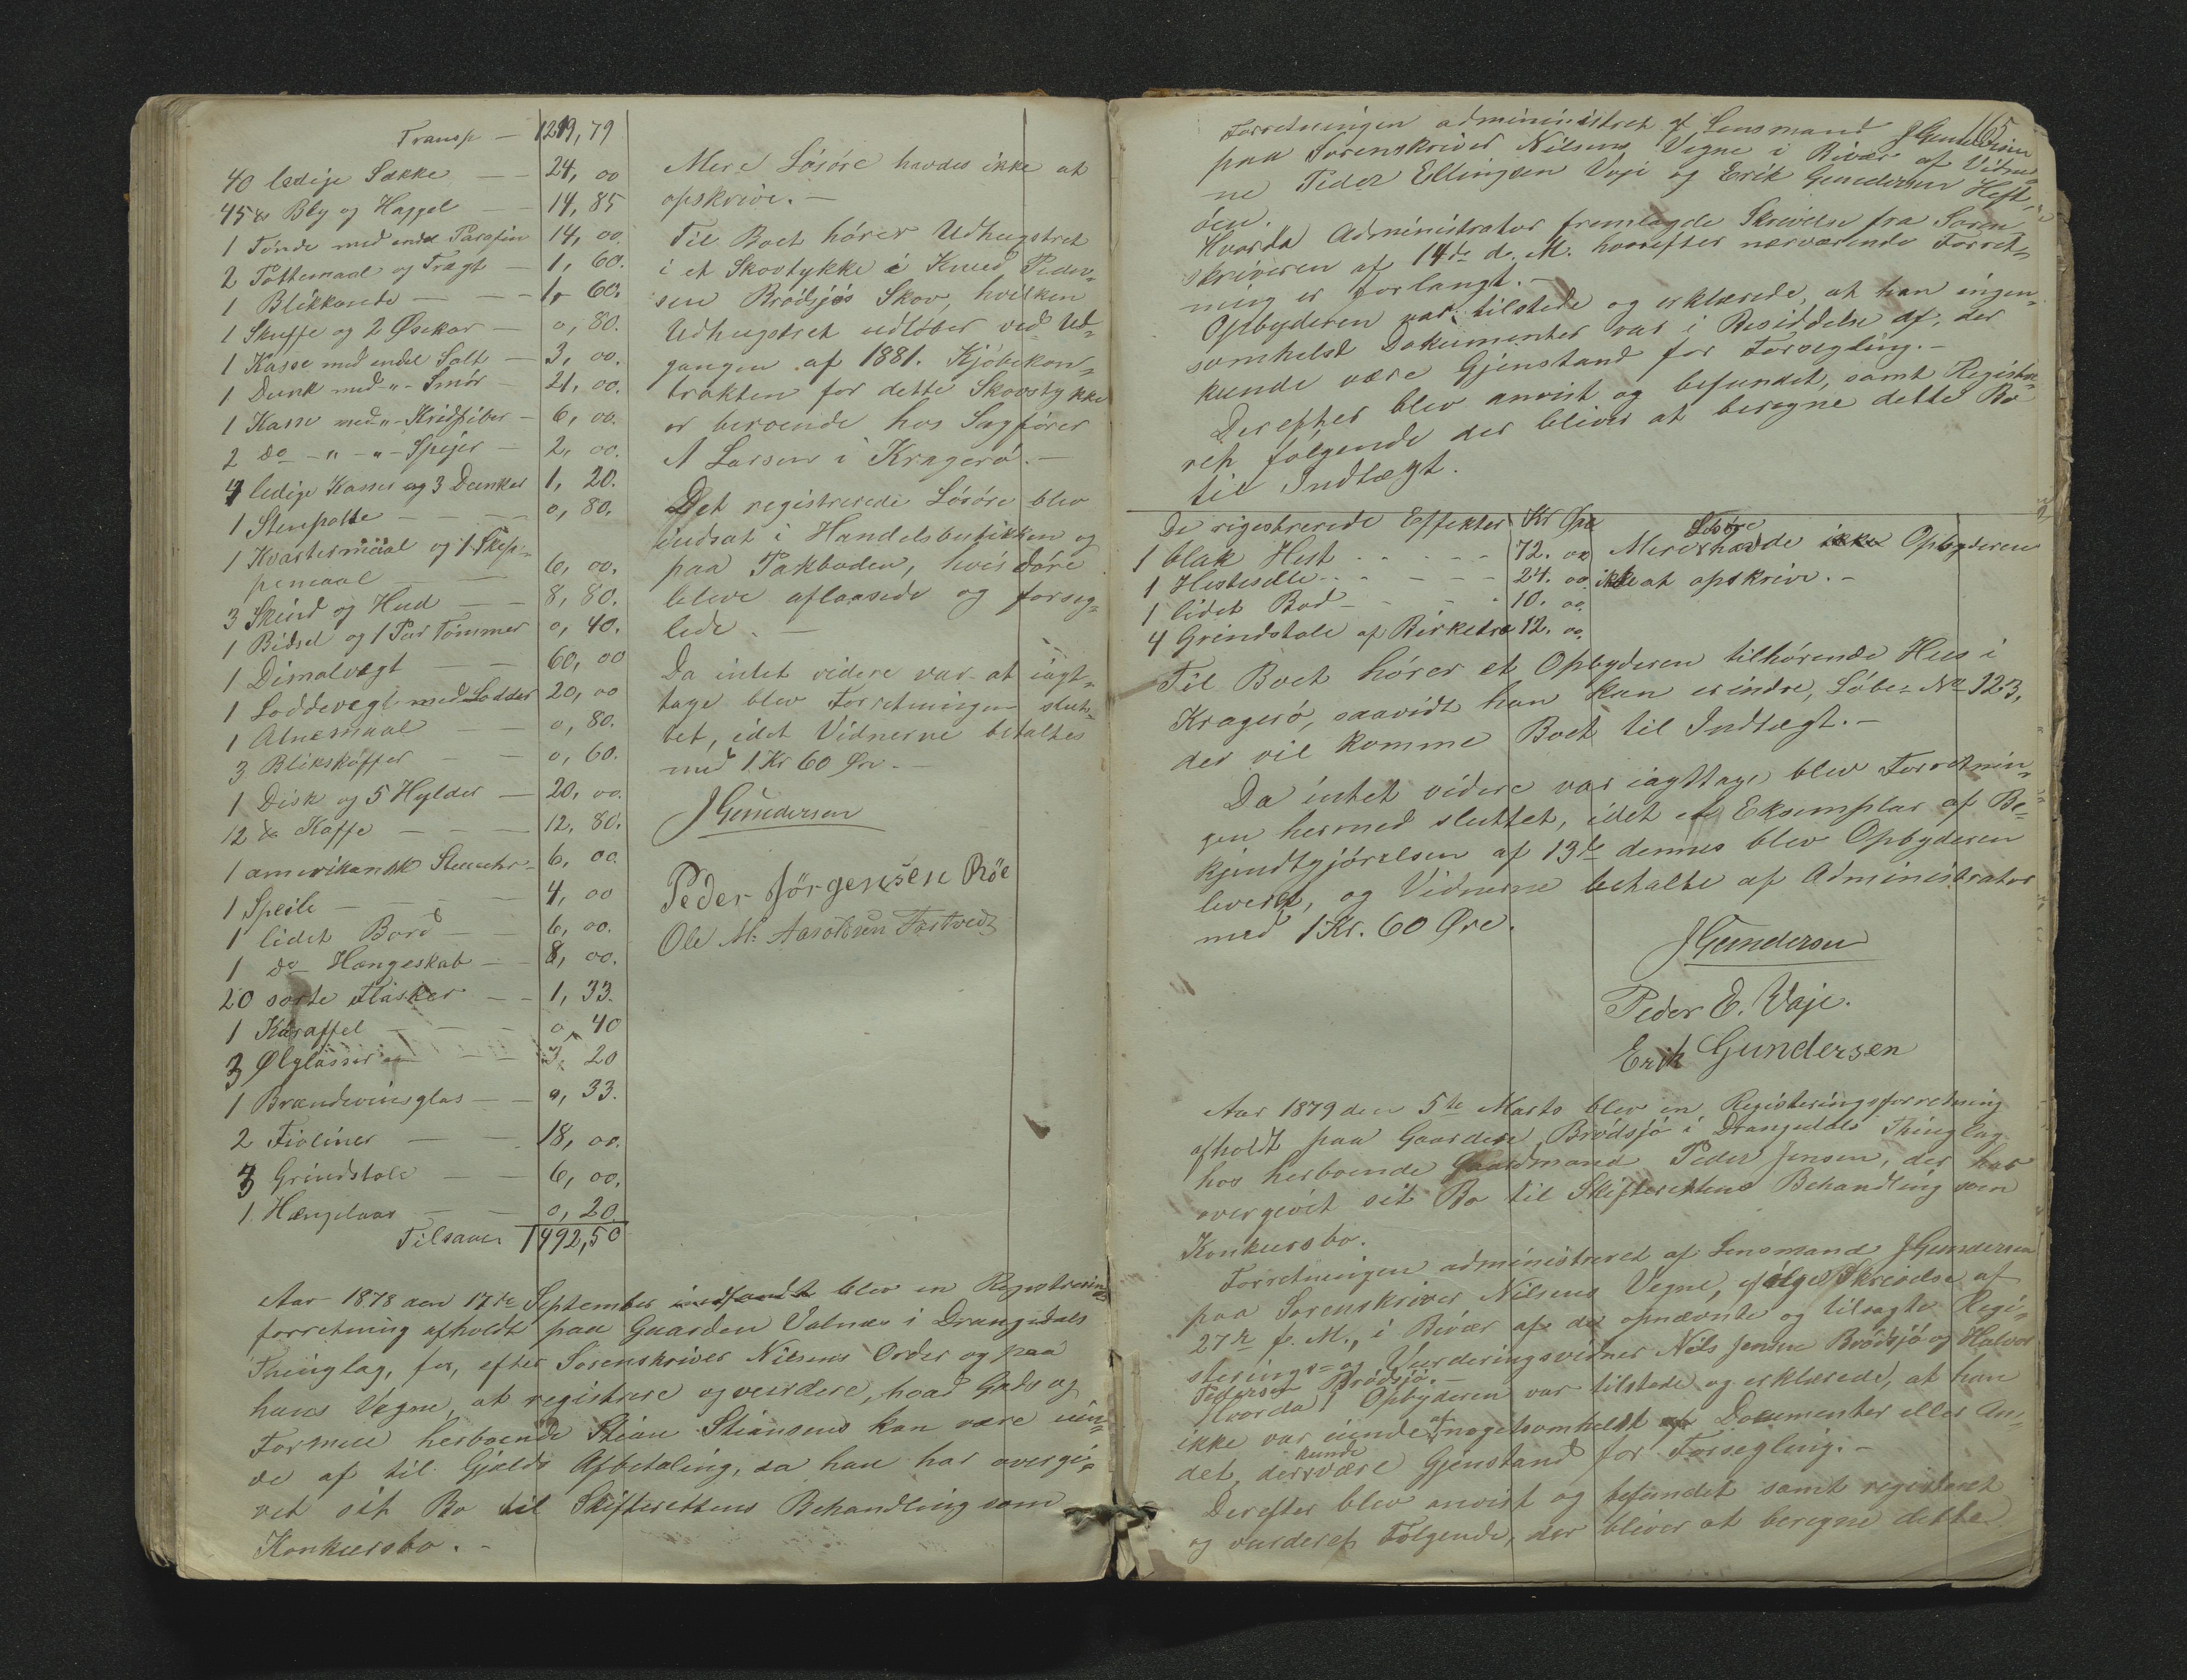 Transp — 1219,79
40 ledige Sække — 24, 00
45 ℔ Bly og Haggel — 14, 85
1 Tønde med endel Parafin 14, 00.
2 Pottemaal og Tragt — 1, 60.
1 Blikkande — — 1, 60.
1 Skuffe og 2 Øsekar — 0, 80.
1 Kasse med endel Salt — 3, 00.
1 Dunk med „ Smör — 21, 00.
1 Kasse med „ Kridpiber — 6, 00.
2 Do - „ - „ - Spiger — 2, 00.
4 ledige Kasser og 3 Dunker 1, 20.
1 Stenpotte — — 0, 80.
1 Kvartesmaal og 1 Skep-
pemaal — — 6, 00.
3 Skind og Hud — — 8, 80.
1 Bidsel og 1 Par Tömmer 0, 40.
1 Dismalvægt — — 60, 00
1 Loddevægt med Lodder 20, 00
1 Alnesmaal — — 0, 80.
3 Bliksköffer — — 0, 60.
1 Disk og 5 Hylder — 20, 00.
12 ℔ Kaffe — — 12, 80.
1 amerikansk Stueuhr — 6, 00.
1 Speile — — 4, 00
1 lidet Bord — — 6, 00.
1 do Hængeskab — 8, 00.
20 sorte Flasker — — 1, 33.
1 Karaffel — — 0, 40
3 Ølglasser — — 20
1 Brændevinsglas — — 0, 33.
2 Fioliner — — 18, 00.
3 Grindstole — — 6, 00.
1 Hængelaas — — 0, 20
Tilsamen 1492,50
Mere Lösöre havdes ikke at
opskrive. —
Til Boet hörer Udhugstret
i et Skovstykke i Knud Peder-
sen Brödsjös Skov, hvilken
Udhugstret udlöber ved Ud-
gangen af 1881. Kjöbekon-
trakten for dette Skovstykke
er beroende hos Sagförer
A Larsen i Kragerö. —
Det registrerede Lösöre blev
indsat i Handelsbutikken og
paa Pakboden, hvis Döre
bleve aflaasede og forseg-
lede. —
Da intet videre var at iagt-
tage blev Forretningen slut-
tet, idet Vidnerne betaltes
med 1 Kr 60 Øre. —
J Gundersen
Peder Jörgensen Röe
Ole M. Aasoldsen Tostvedt
Aar 1878 den 17de September blev en Registrerings
forretning afholdt paa Gaarden Valnæs i Drangedals
Thinglag, for, efter Sorenskriver Nilsens Order og paa
hans Vegne, at registrere og vurdere, hvad Gods og
Formue herboende Stian Stiansens kan være ein-
de af til Gjelds Afbetaling, da han har overgi-
vet sit Bo til Skifterettens Behandling som
Konkursbo. -
165
Forretningen administreret af Lensmand J Gundersen
paa Sorenskriver Nilsens Vegne i Bivær af Vidner-
ne Peder Ellingsen Vaje og Erik Gundersen Heft-
öen.
Hvorda Administrator fremlagde Skrivelse fra Soren-
skriveren af 14de d. M. hvorefter nærværende Forret-
ning er forlangt. —
Opbyderen var tilstede og erklærede, at han ingen-
somhelst Dokumenter var i Besiddelse af, der
kunde være Gjenstand for Forsegling. —
Derefter blev anvist og befundet, samt Registre-
ret følgende der bliver at beregne dette Bo
til Indtægt.
De rigestrerede Effekter Kr Øre
1 blak Hest — — 72. 00
1 Hestesele — — 24. 00.
1 lidet Bod — — 10. 00.
4 Grindstole af Birketræ 12. 00.
Lösöre
Mere havde Opbyderen
ikke at opskrive. —
Til Boet hörer et Opbyderen tilhörende Hus i
Kragerö, saavidt han kan erindre, Löbe-No 123,
der vil komme Boet til Indtægt. —
Da intet videre var iagttage, blev Forretnin-
gen hermed sluttet, idet et Eksemplar af Be-
kjendtgjörelsen af 13de dennes blev Opbyderen
leveret, og Vidnerne betalte af Administrator
med 1 Kr. 60 Øre.
J Gundersen
Peder E. Vaje.
Erik Gundersen
Aar 1879 den 5te Marts blev en Registeringsforretning
afholdt paa Gaarden Brödsjö i Drangedals Thinglag
hos herboende Gaardmand Peder Jensen, der har
overgivet sit Bo til Skifterettens Behandling som
Konkursbo.
Forretningen administreret af Lensmand J Gundersen
paa Sorenskriver Nilsens Vegne, ifölge Skrivelse af
27de f. M., i Bivær af de opnævnte og tilsagte Regi-
sterings- og Vurderingsvidner Nils Jensen Brödsjö og Halvor
Pedersen Brödsjö. —
Hvorda Opbyderen var tilstede og erklærede, at han
ikke var iinde af nogetsomhelst Documenter eller An-
det, der kunde være Gjenstand for Forsegling. —
Derefter blev anvist og befundet samt registreret
og vurderet Følgende, der bliver at beregne dette